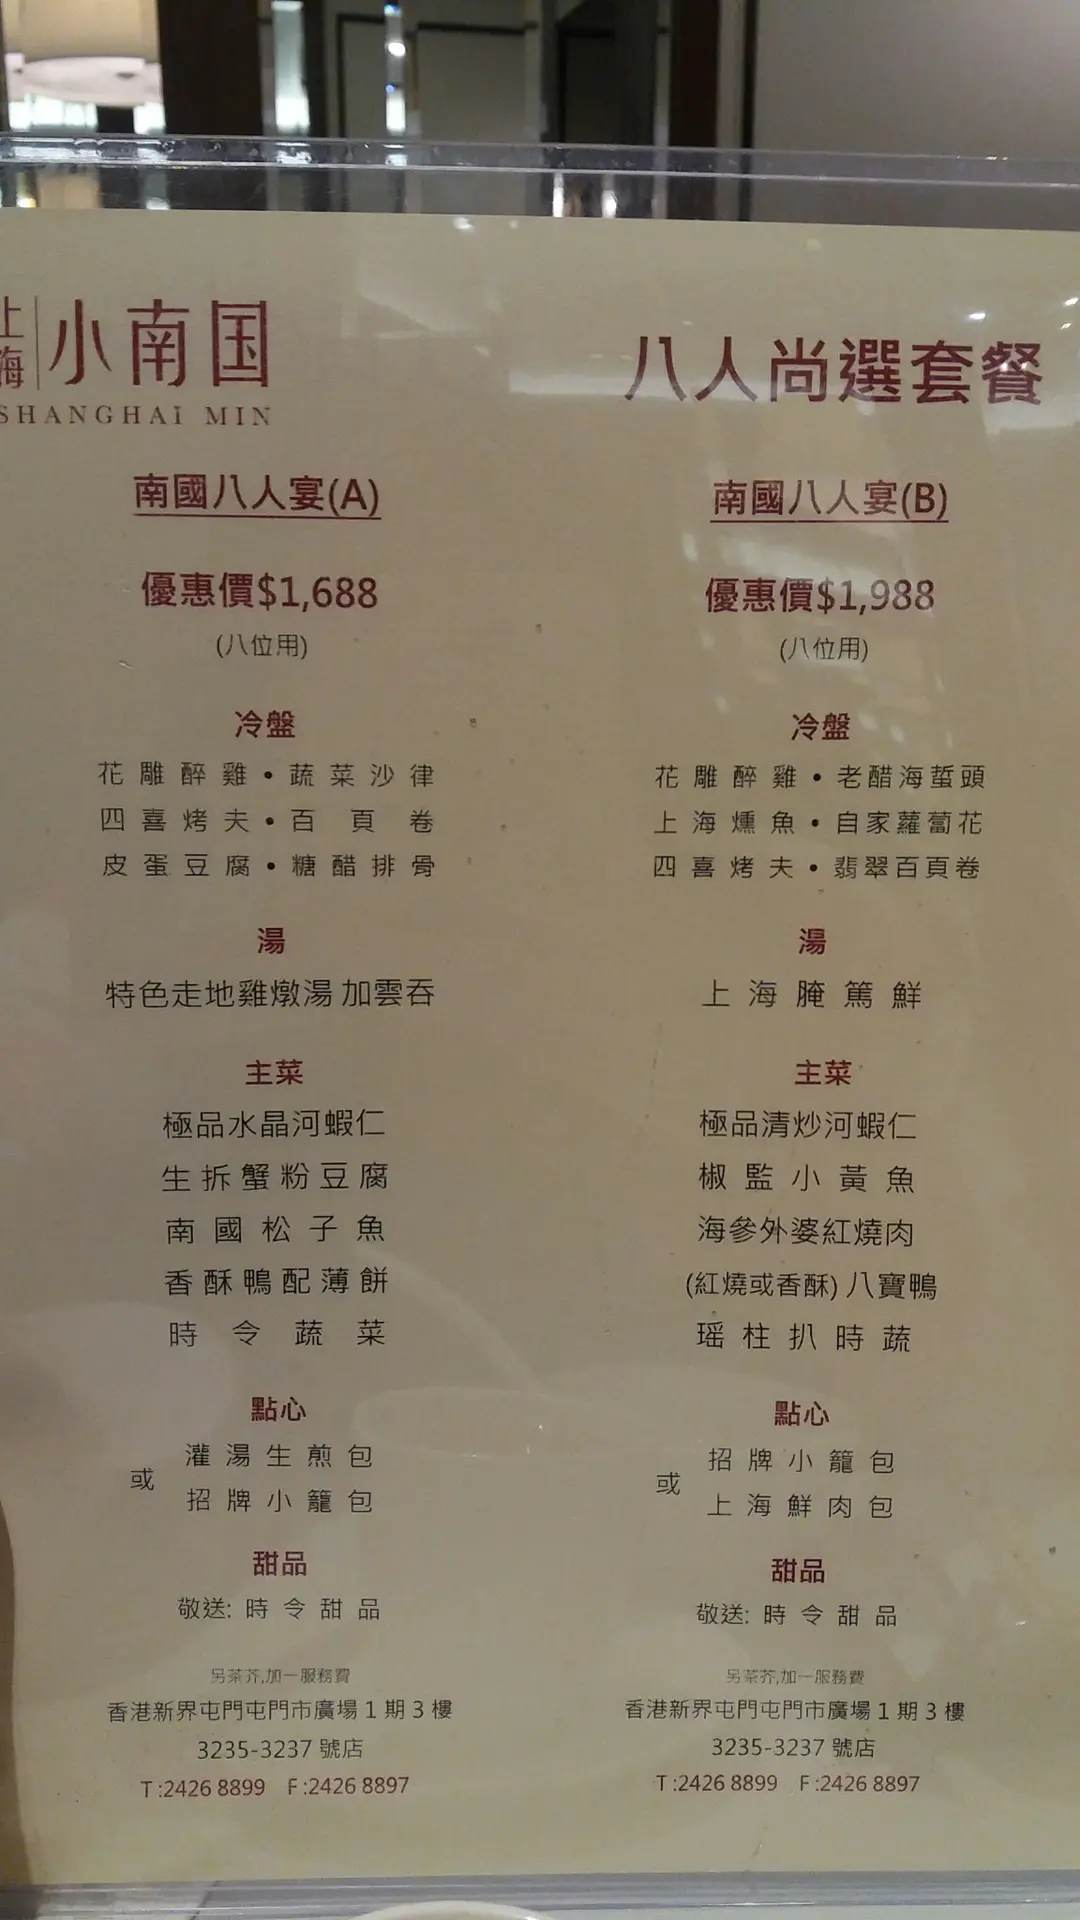 上海 小南国
SHANGHAI MIN
八人尚選套餐
南國八人宴(A)
優惠價$1,688
(八位用)
冷盤
花雕醉雞•蔬菜沙律
四喜烤夫•百頁卷
皮蛋豆腐•糖醋排骨
湯
特色走地雞燉湯 加雲吞
主菜
極品水晶河蝦仁
生拆蟹粉豆腐
南國松子魚
香酥鴨配薄餅
時令蔬菜
點心
灌湯生煎包
或
招牌小籠包
甜品
敬送: 時令甜品
另茶芥,加一服務費
香港新界屯門屯門市廣場 1 期 3 樓
3235-3237 號店
T :2426 8899 F :2426 8897
南國八人宴(B)
優惠價$1,988
(八位用)
冷盤
花雕醉雞•老醋海蜇頭
上海燻魚•自家蘿蔔花
四喜烤夫•翡翠百頁卷
湯
上海腌篤鮮
主菜
極品清炒河蝦仁
椒監小黃魚
海參外婆紅燒肉
(紅燒或香酥) 八寶鴨
瑶柱扒時蔬
點心
招牌小籠包
或
上海鮮肉包
甜品
敬送: 時令甜品
另茶芥,加一服務費
香港新界屯門屯門市廣場 1 期 3 樓
3235-3237 號店
T :2426 8899 F :2426 8897